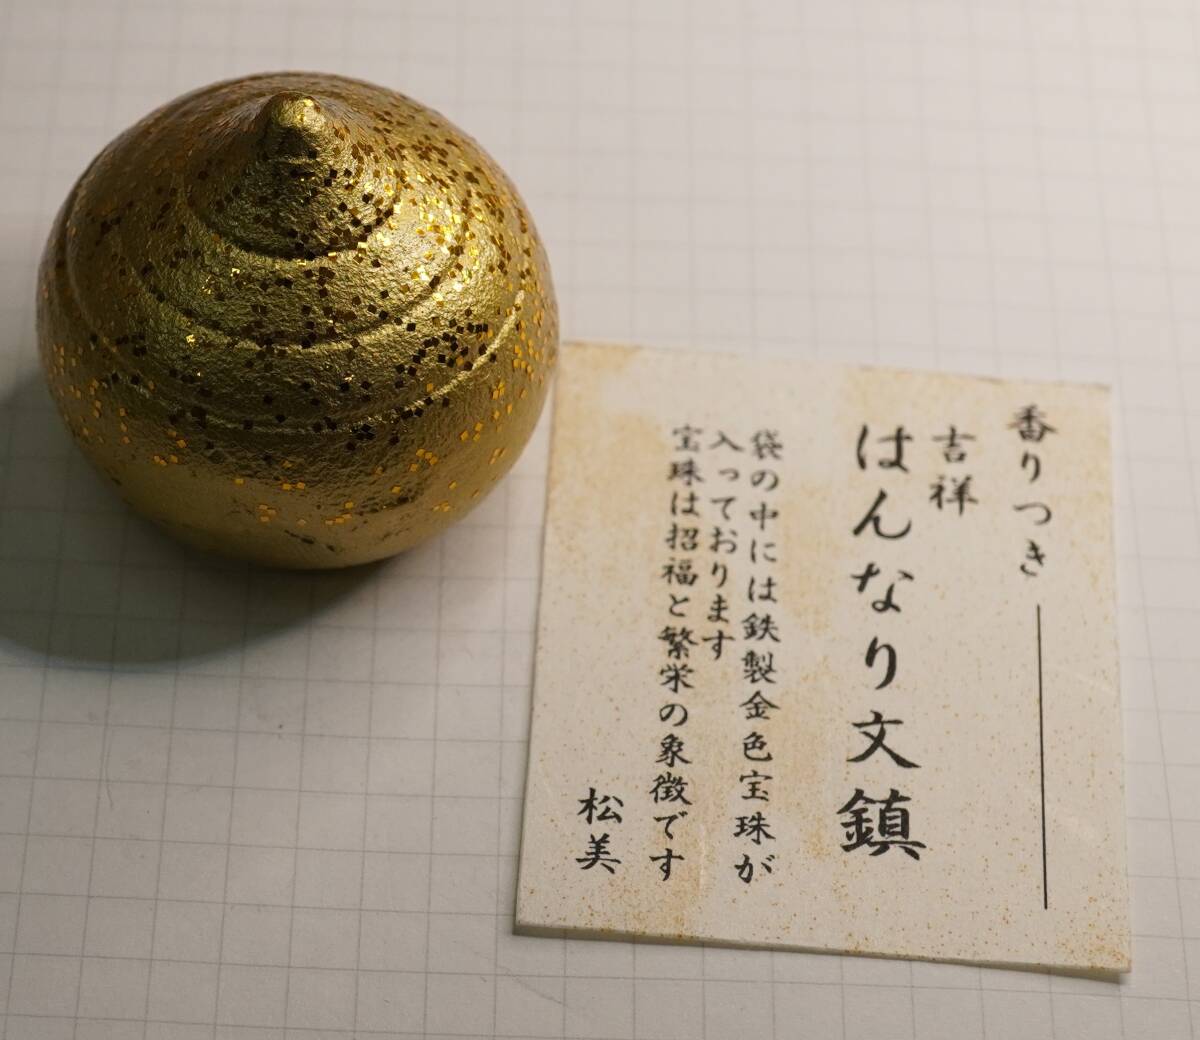 香りつき
吉祥
はんなり文鎮
袋の中には鉄製金色宝珠が
入っております
宝珠は招福と繁栄の象徴です
松美